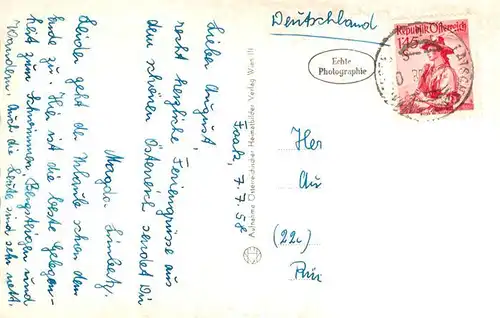 Deutschland
Republik Österreich
1.45 S
Echte
Photographie
Faak, 7.7.58
Lieber August,
recht herzliche Feriengrüsse aus
dem schönen Österreich sendet Dir
Magda
Leider geht der Urlaub schon dem
Ende zu. Hier ist die beste Gelegen-
heit zum Schwimmen, Bergsteigen und
Wandern. Auch die Leute sind sehr nett.
Aufnahme Österreichischer Heimatbilder Verlag Wien III
Her
Au
(22c)